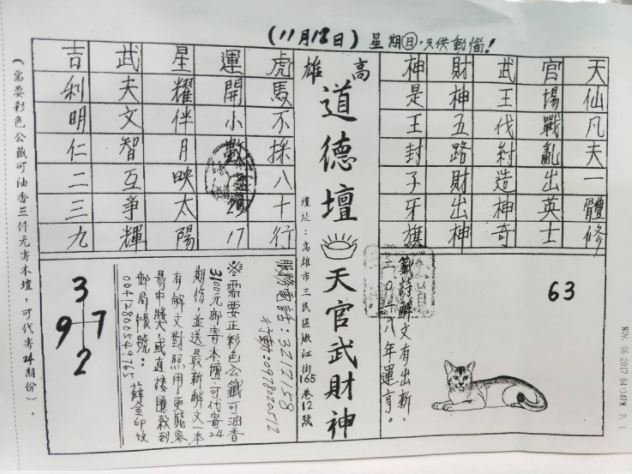 (11月12日) 星期日，只供動腦！
天仙凡夫一體修
官場戰亂出英士
武王伐紂造神奇
財神五路財出神
神是王封子牙旗
高雄
道德壇
天官武財神
壇址：高雄市三民區嫩江街165巷12號
虎馬不採八十行
運開小數 17
星耀伴月映太陽
武夫文智互爭輝
吉利明仁二三九
(需要彩色公籤可油香三仟元寄本壇，可代寄24期份)。
63
籤詩解文有出新，
二〇一八年運亨。
服務電話：3217158
行動：0978020512
※需要正彩色公籤可油香
3000元郵寄本壇可代寄24
期份，並送最新解文一本
有解文對照用，更能容
易中獎，或直接匯款到
郵局帳號：
3
9 7
2
NOV. 06 2017 04:34PM P. 1